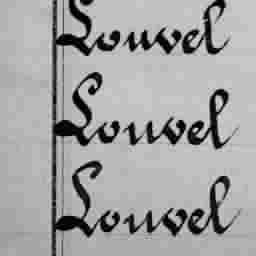 Louvel
Louvel
Louvel